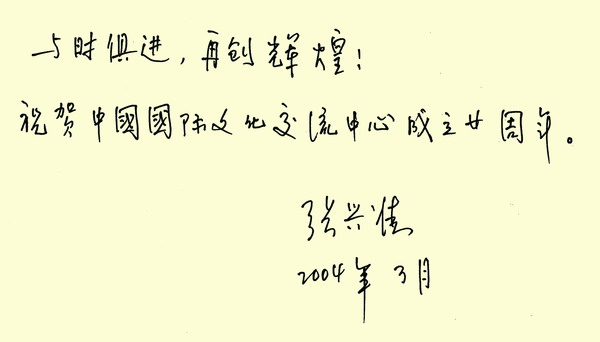 与时俱进，再创辉煌！
祝贺中國國际文化交流中心成立廿周年。
张兴
2004年3月